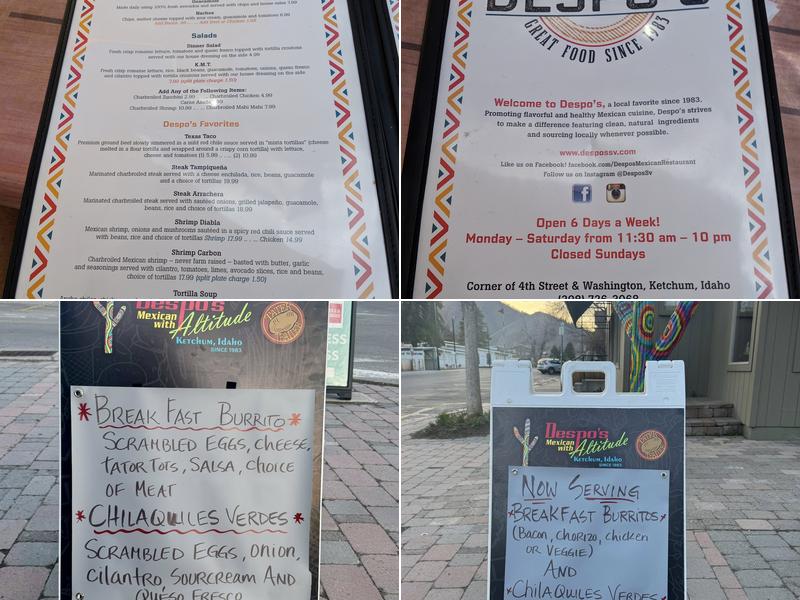 Guacamole
Made daily using 100% fresh avocados and served with chips and house salsa 7.99
Nachos
Chips, melted cheese topped with sour cream, guacamole and tomatoes 6.99
Salads
Dinner Salad
Fresh crisp romaine lettuce, tomatoes and queso fresco topped with tortilla croutons
served with our house dressing on the side 4.99
K.M.T.
Fresh crisp romaine lettuce, rice, black beans, guacamole, tomatoes, onions, queso fresco
and cilantro topped with tortilla croutons served with our house dressing on the side
7.99 (split plate charge 1.50)
Add Any of the Following Items:
Charbroiled Zucchini 2.99 ... Charbroiled Chicken 4.99
Carne Asada
Charbroiled Shrimp 10.99 ... Charbroiled Mahi Mahi 7.99
Despo's Favorites
Texas Taco
Premium ground beef slowly simmered in a mild red chile sauce served in "mixta tortillas" (cheese
melted in a flour tortilla and wrapped around a crispy corn tortilla) with lettuce,
cheese and tomatoes (1) 5.99 ... (2) 10.99
Steak Tampiqueña
Marinated charbroiled steak served with a cheese enchilada, rice, beans, guacamole
and a choice of tortillas 19.99
Steak Arrachera
Marinated charbroiled steak served with sautéed onions, grilled jalapeño, guacamole,
beans, rice and choice of tortillas 18.99
Shrimp Diabla
Mexican shrimp, onions and mushrooms sautéed in a spicy red chili sauce served
with beans, rice and choice of tortillas Shrimp 17.99 ... Chicken 14.99
Shrimp Carbon
Charbroiled Mexican shrimp – never farm raised – basted with butter, garlic
and seasonings served with cilantro, tomatoes, limes, avocado slices, rice and beans,
choice of tortillas 17.99 (split plate charge 1.50)
Tortilla Soup
DESPO'S
GREAT FOOD SINCE 1983
Welcome to Despo's, a local favorite since 1983,
Promoting flavorful and healthy Mexican cuisine, Despo's strives
to make a difference featuring clean, natural ingredients
and sourcing locally whenever possible.
www.despossv.com
Like us on Facebook! facebook.com/DesposMexicanRestaurant
Follow us on Instagram @DesposSv
Open 6 Days a Week!
Monday – Saturday from 11:30 am – 10 pm
Closed Sundays
Corner of 4th Street & Washington, Ketchum, Idaho
(208) 726-3068
Despo's
Mexican
with Altitude
Ketchum, Idaho
SINCE 1983
BREAKFAST BURRITO
SCRAMBLED EGGS, CHEESE,
TATOR TOTS, SALSA, CHOICE
OF MEAT
CHILAQUILES VERDES
SCRAMBLED EGGS, ONION,
CILANTRO, SOURCREAM AND
QUESO FRESCO
Despo's
Mexican
with Altitude
Ketchum, Idaho
SINCE 1983
NOW SERVING
BREAKFAST BURRITOS
(BACON, CHORIZO, CHICKEN
OR VEGGIE)
AND
CHILAQUILES VERDES